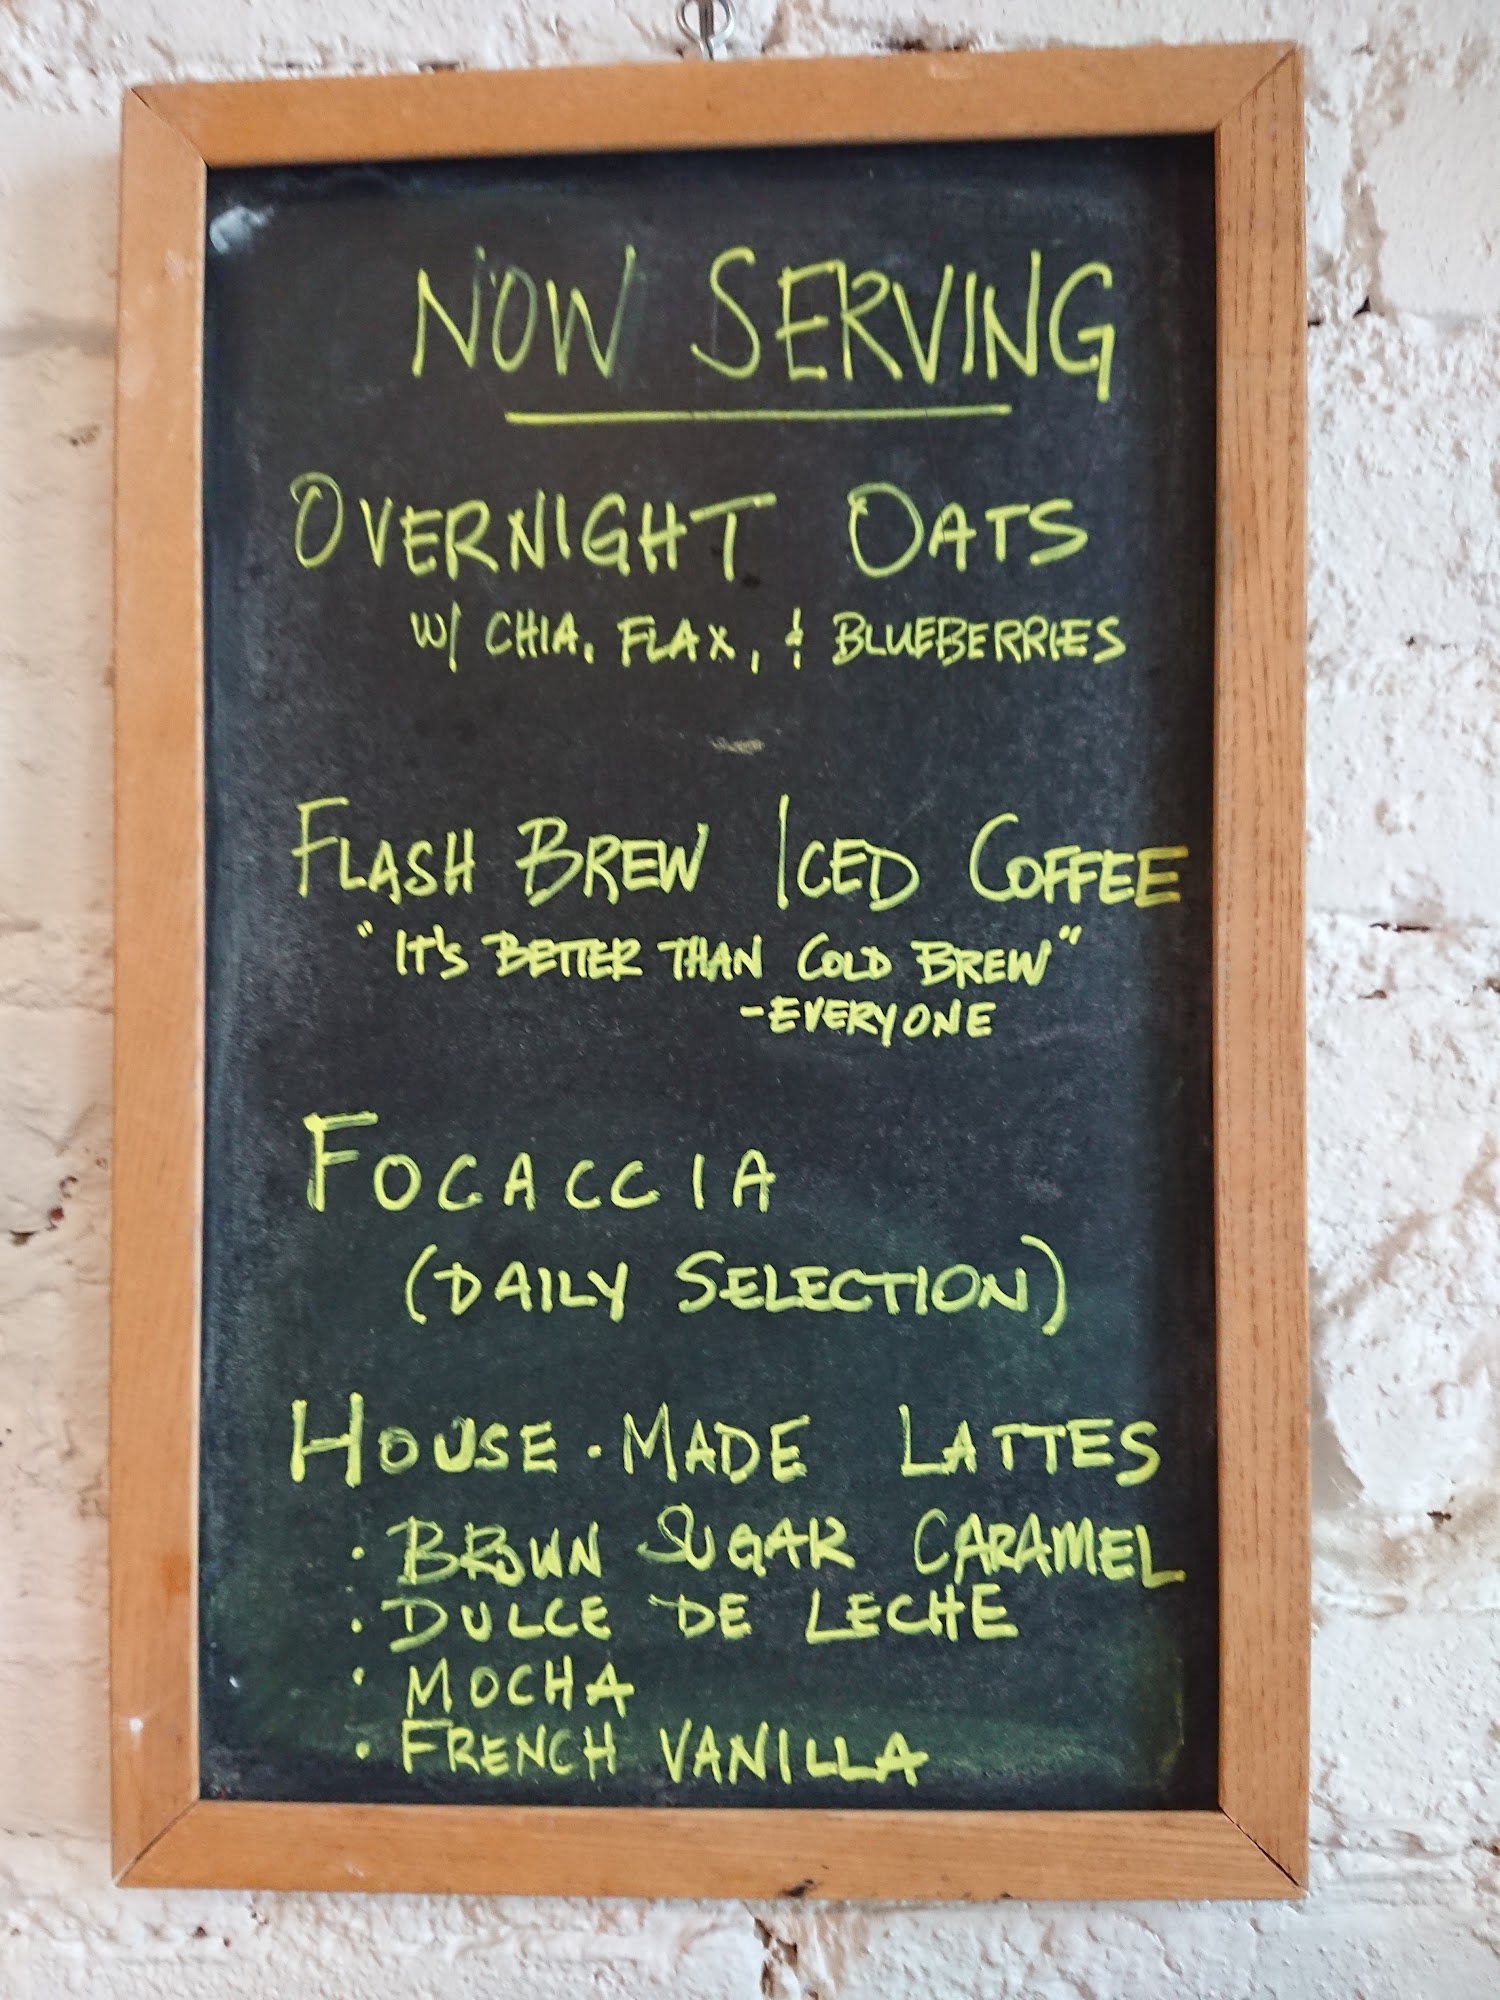 NOW SERVING
OVERNIGHT OATS
W/ CHIA, FLAX, & BLUEBERRIES
FLASH BREW ICED COFFEE
"IT'S BETTER THAN COLD BREW"
-EVERYONE
FOCACCIA
(DAILY SELECTION)
HOUSE-MADE LATTES
• BROWN SUGAR CARAMEL
• DULCE DE LECHE
• MOCHA
• FRENCH VANILLA